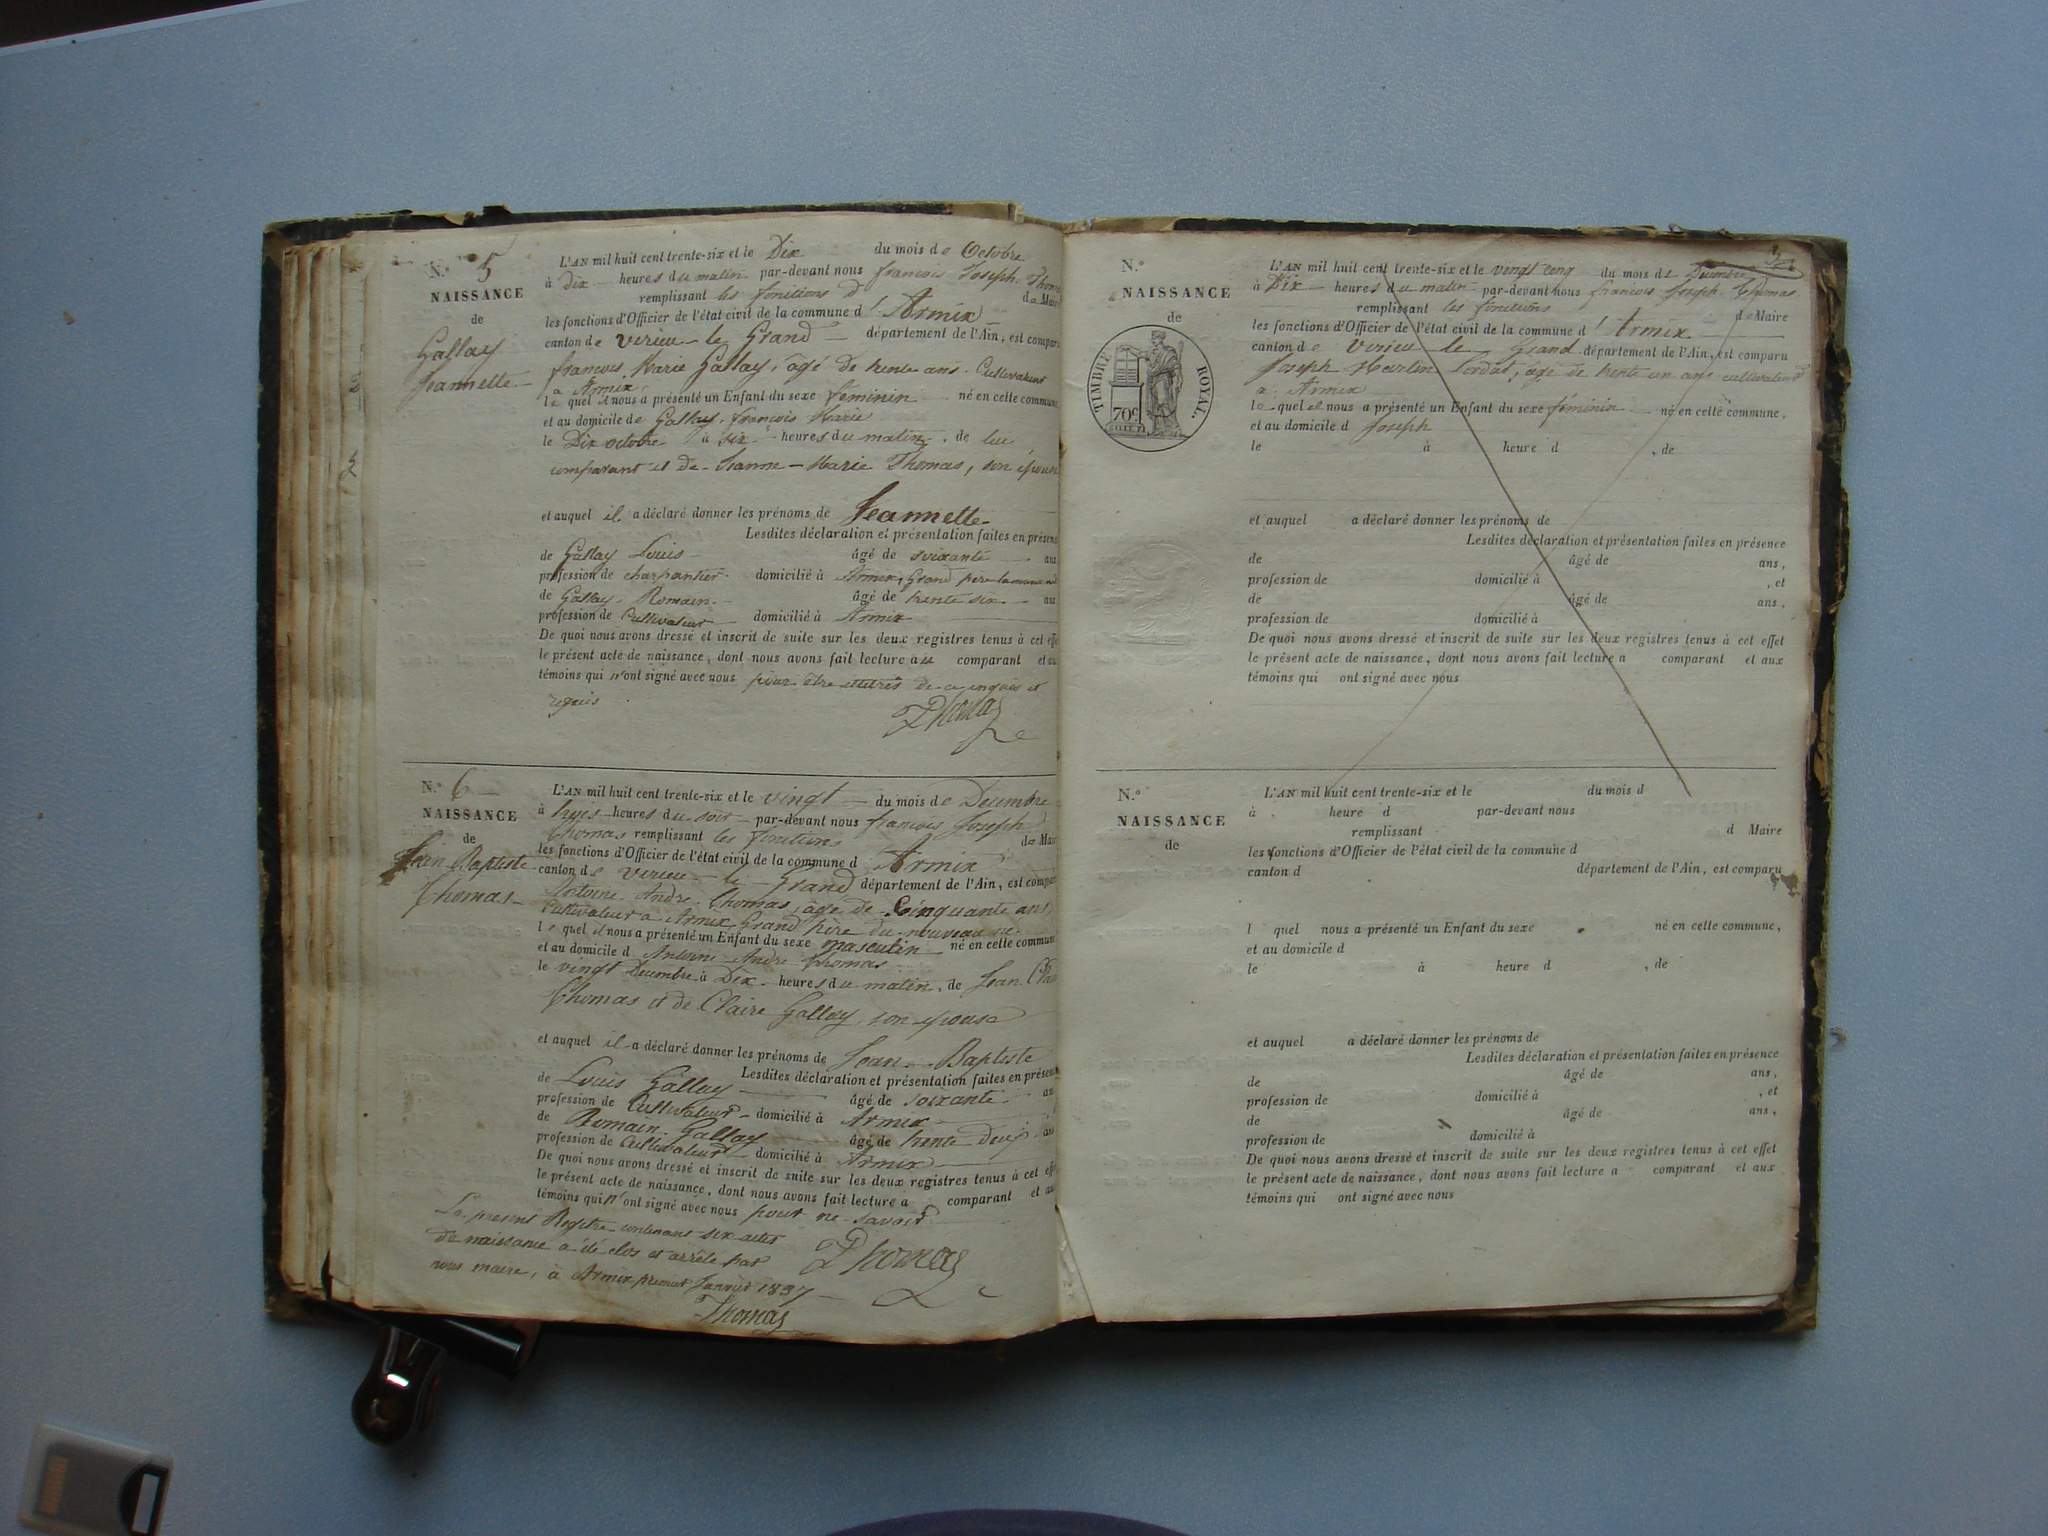 N.° 5
NAISSANCE
de
Gallay
Jeannette
L'AN mil huit cent trente-six et le Dix du mois de Octobre
à dix heures du matin par-devant nous francois Joseph Thomas
remplissant les fonctions d de Maire
les fonctions d'Officier de l'état civil de la commune d' Armix
canton de virieu le Grand département de l'Ain, est comparu
francois Marie Gallay, âgé de trente ans Cultivateur
a Armix
le quel il nous a présenté un Enfant du sexe féminin né en cette commune
et au domicile de Gallay françois Marie
le Dix octobre à six heures du matin, de lui
comparant et de Jeanne-Marie Thomas, son épouse
et auquel il a déclaré donner les prénoms de Jeannette
Lesdites déclaration et présentation faites en présence
de Gallay Louis âgé de soixante ans
profession de charpentier domicilié à Armix, Grand pere
de Gallay Romain âgé de trente six ans
profession de Cultivateur domicilié à Armix
De quoi nous avons dressé et inscrit de suite sur les deux registres tenus à cet effet
le présent acte de naissance, dont nous avons fait lecture au comparant et aux
témoins qui n'ont signé avec nous pour être illitérés de ce enquis et
requis
Thomas
N.° 6
NAISSANCE
de
Jean Baptiste
Thomas
L'AN mil huit cent trente-six et le vingt du mois de Decembre
à trois heures du soir par-devant nous francois Joseph
Thomas remplissant les fonctions de Maire
les fonctions d'Officier de l'état civil de la commune d Armix
canton de virieu le Grand département de l'Ain, est comparu
Antoine André Thomas, âgé de Cinquante ans
Cultivateur a Armix Grand Père du nouveau né
le quel il nous a présenté un Enfant du sexe masculin né en cette commune
et au domicile d Antoine André Thomas
le vingt Decembre à Dix heures du matin, de Jean
Thomas et de Claire Gallay, son epouse
et auquel il a déclaré donner les prénoms de Jean Baptiste
Lesdites déclaration et présentation faites en présence
de Louis Gallay âgé de soixante ans
profession de Cultivateur domicilié à Armix
de Romain Gallay âgé de trente Deux ans
profession de Cultivateur domicilié à Armix
De quoi nous avons dressé et inscrit de suite sur les deux registres tenus à cet effet
le présent acte de naissance, dont nous avons fait lecture a comparant et aux
témoins qui n'ont signé avec nous pour ne savoir
Le present Registre contenant six actes
de naissance a été clos et arrêté par
nous maire, à Armix premier Janvier 1837
Thomas
Thomas
N.°
NAISSANCE
de
TIMBRE ROYAL.
70c.
L'AN mil huit cent trente-six et le vingt cinq du mois de Decembre
à Dix heures du matin par-devant nous francois Joseph Thomas
remplissant les fonctions de Maire
les fonctions d'Officier de l'état civil de la commune d' Armix
canton de Virieu le Grand département de l'Ain, est comparu
Joseph âgé de trente un ans cultivateur
a Armix
le quel il nous a présenté un Enfant du sexe féminin né en cette commune,
et au domicile d Joseph
le à heure d , de
et auquel a déclaré donner les prénoms de
Lesdites déclaration et présentation faites en présence
de âgé de ans,
profession de domicilié à , et
de âgé de ans,
profession de domicilié à
De quoi nous avons dressé et inscrit de suite sur les deux registres tenus à cet effet
le présent acte de naissance, dont nous avons fait lecture a comparant et aux
témoins qui ont signé avec nous
N.°
NAISSANCE
de
L'AN mil huit cent trente-six et le du mois d
à heure d par-devant nous
remplissant d Maire
les fonctions d'Officier de l'état civil de la commune d
canton d département de l'Ain, est comparu
l quel nous a présenté un Enfant du sexe né en cette commune,
et au domicile d
le à heure d , de
et auquel a déclaré donner les prénoms de
Lesdites déclaration et présentation faites en présence
de âgé de ans,
profession de domicilié à , et
de âgé de ans,
profession de domicilié à
De quoi nous avons dressé et inscrit de suite sur les deux registres tenus à cet effet
le présent acte de naissance, dont nous avons fait lecture a comparant et aux
témoins qui ont signé avec nous